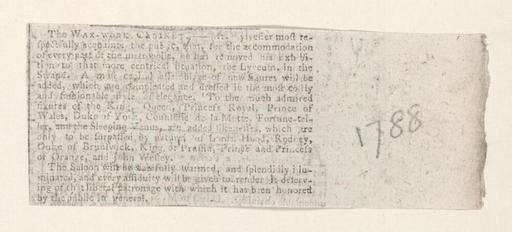 The WAX-WORK CABINET,—Mr. Sylvester most re-
spectfully acquaints the public, that, for the accommodation
of every part of the metropolis, he has removed his Exhibi-
tion to that more centrical situation, the Lyceum, in the
Strand. A most capital assemblage of new figures will be
added, which are compleated and dressed in the most costly
and fashionable style of elegance. To the much admired
figures of the King, Queen, Princess Royal, Prince of
Wales, Duke of York, Countesse de la Motte, Fortune-tel-
ler, and the Sleeping Venus, are added likenesses, which are
only to be surpassed by nature, of Lords Hood, Rodney,
Duke of Brunswick, King of Prussia, Prince and Princess
of Orange, and John Wesley.
The Saloon will be carefully warmed, and splendidly illu-
minated, and every assiduity will be given to render it deserv-
ing of that liberal patronage with which it has been honored
by the public in general.
1788